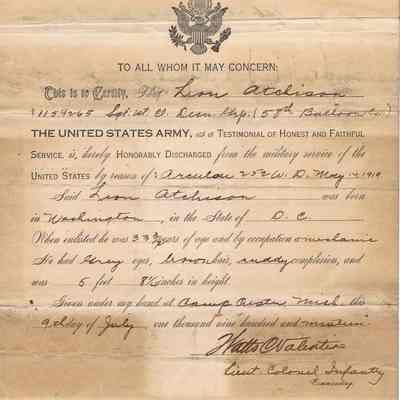 TO ALL WHOM IT MAY CONCERN:
This is to Certify, That Leon Atchison
1159265 Sgt. (58th Balloon Co.)
THE UNITED STATES ARMY, as a TESTIMONIAL OF HONEST AND FAITHFUL
SERVICE, is hereby HONORABLY DISCHARGED from the military service of the
UNITED STATES by reason of: Circular 252 W. D. May 1919
Said Leon Atchison was born
in Washington, in the State of D. C.
When enlisted he was 33 years of age and by occupation a mechanic
He had Grey eyes, brown hair, ruddy complexion, and
was 5 feet 8½ inches in height.
Given under my hand at Camp Custer, Mich. this
9th day of July one thousand nine hundred and nineteen.
Watts C Valentine
Lieut. Colonel Infantry
Commanding.